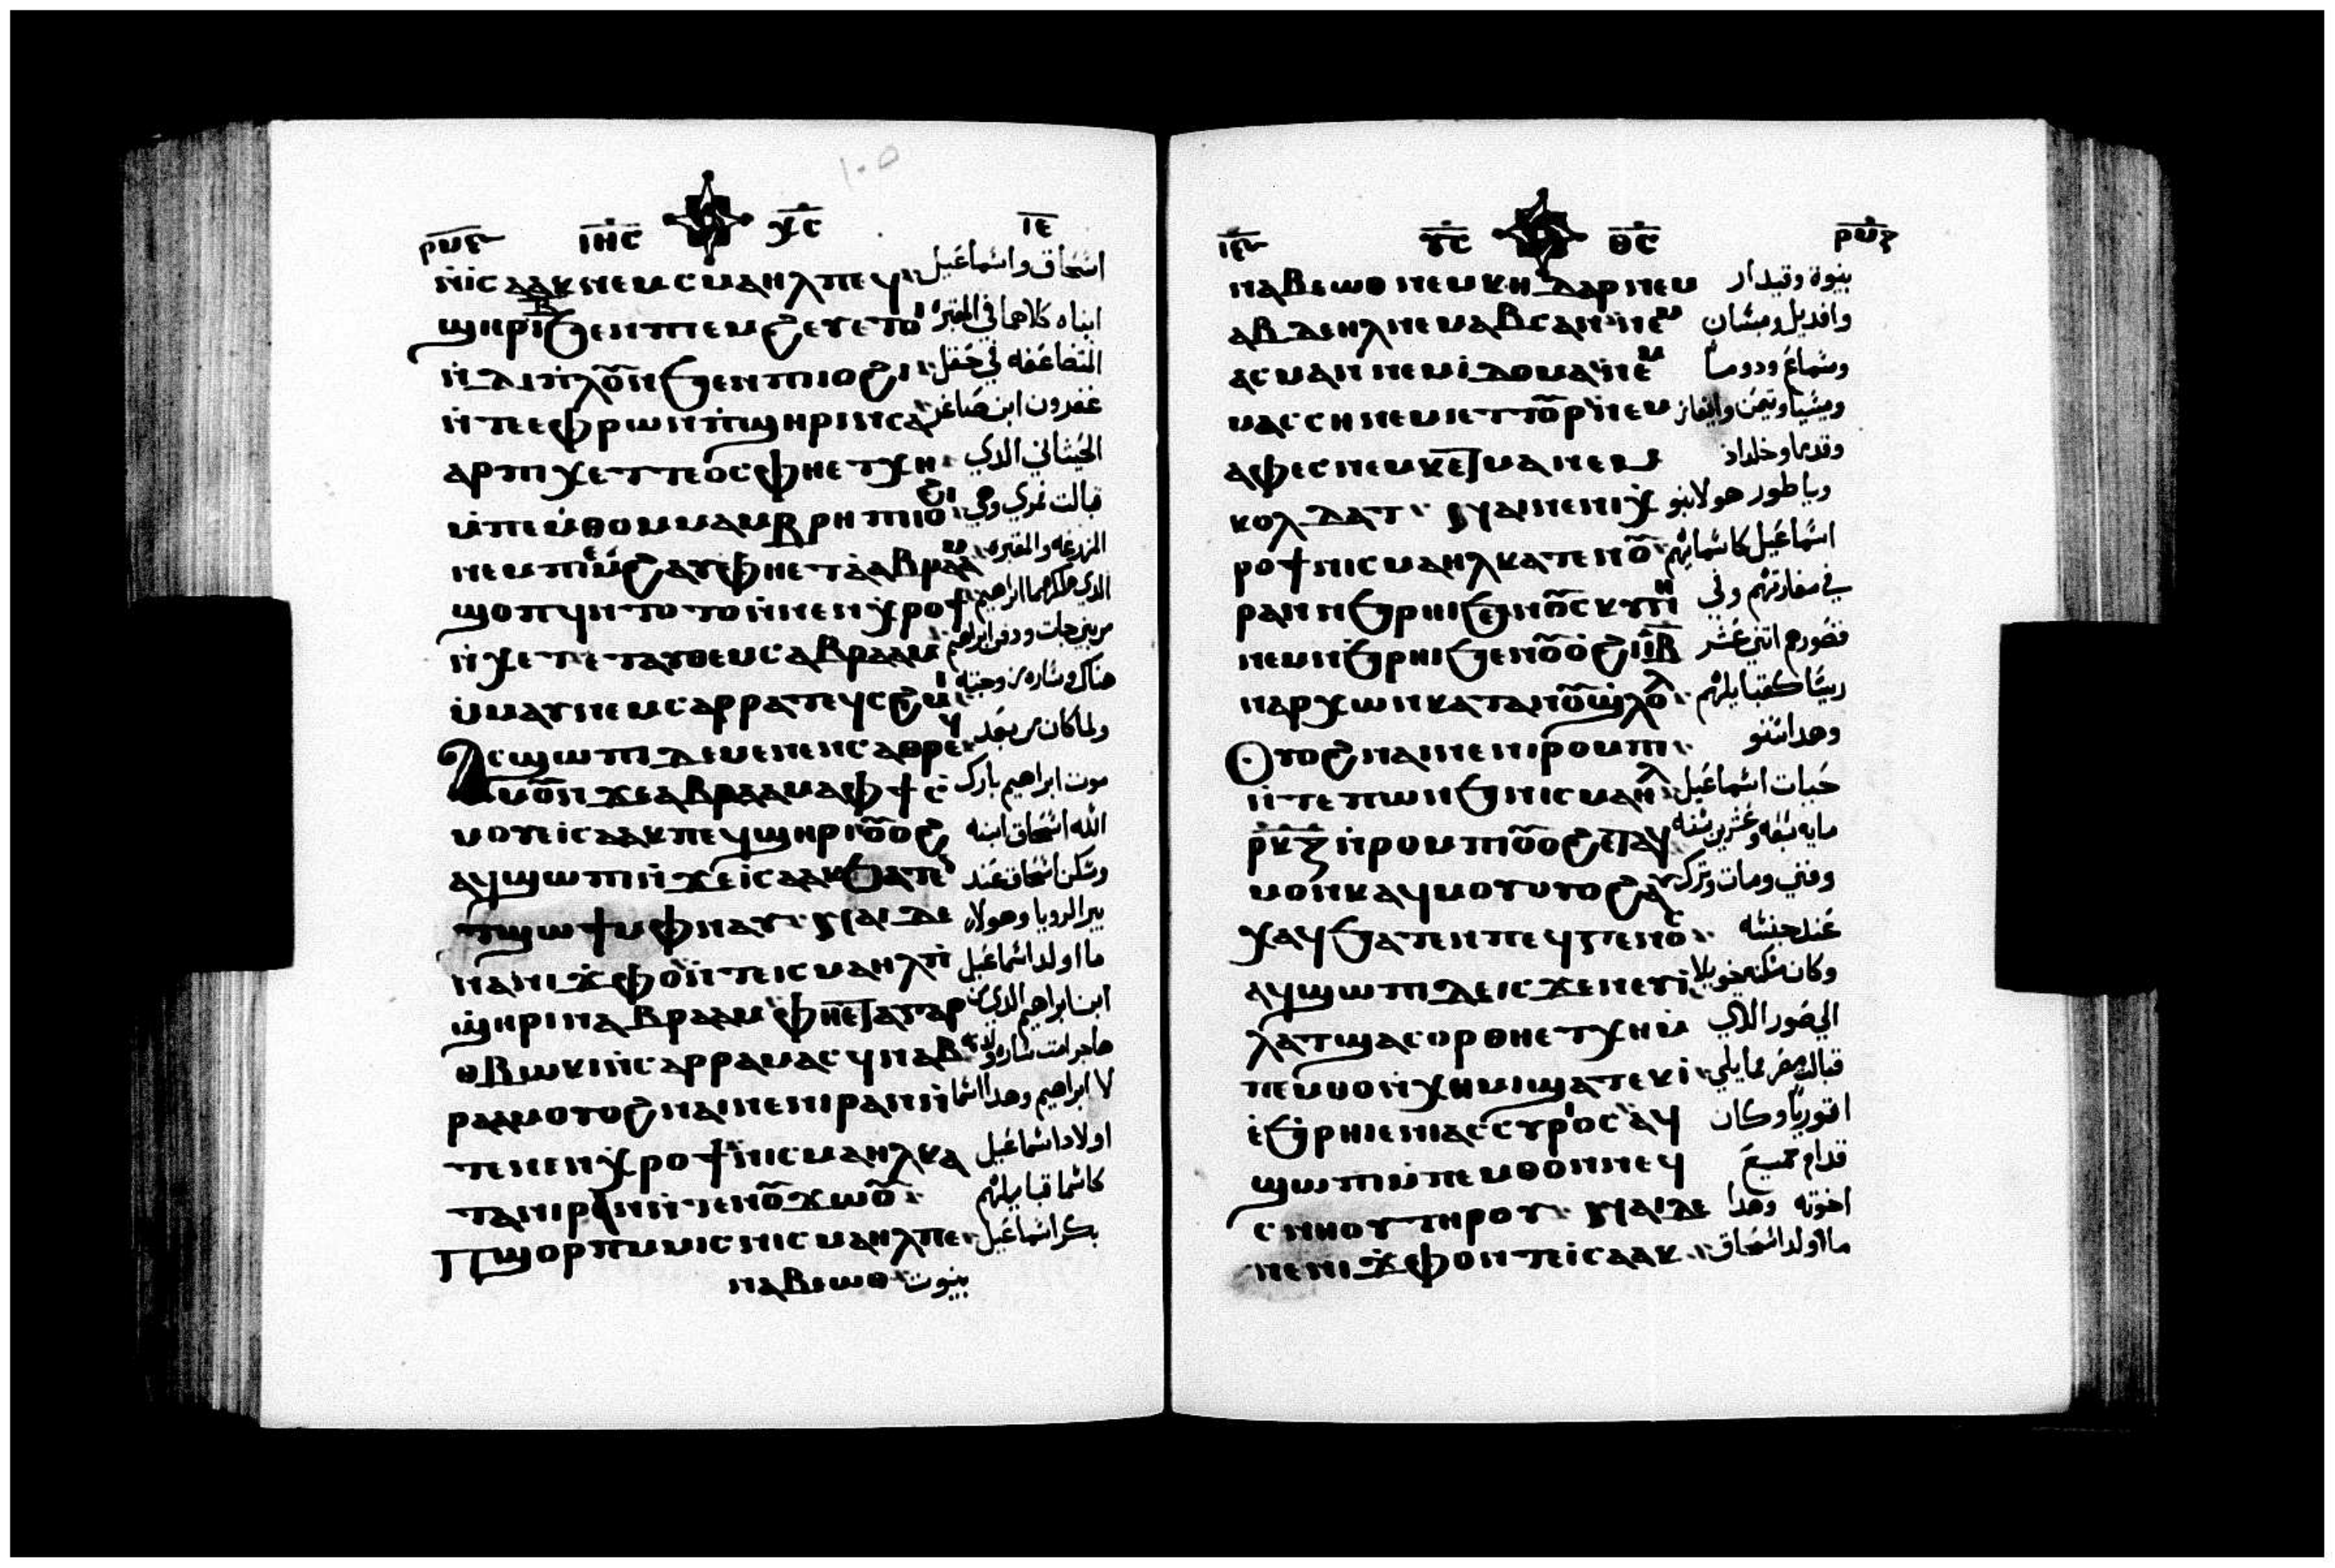 ١٠٥
ⲣⲙⲋ ⲓⲏⲥ ⲭⲥ ⲓⲉ
ⲛ̀ⲓⲥⲁⲁⲕ ⲛⲉⲙ ⲥⲙⲁⲏⲗ ⲡⲉϥ اسحاق واسماعيل
ϣⲏⲣⲓ ⲃ̅ ϧⲉⲛ ⲡⲓⲙϩⲉⲩ ⲉⲧⲟⲓ ابناه كلاهما في المقبره
ⲛ̀ⲇⲓⲡⲗⲟⲩⲛ ϧⲉⲛ ⲡⲓⲓⲟϩⲓ المتضاعفه في حقل
ⲛ̀ⲧⲉ ⲉⲫⲣⲱⲛ ⲡ̀ϣⲏⲣⲓ ⲛⲥⲁ عفرون ابن صاغر
ⲁⲣ ⲡⲓⲭⲉⲧⲧⲉⲟⲥ ⲫⲏⲉⲧⲭⲏ الحيثاني الدي
ⲙ̀ⲡⲉⲙ̀ⲑⲟ ⲙⲙⲁⲙⲃⲣⲏ ⲡⲓⲓⲟϩⲓ قبالت ممري وهي
ⲛⲉⲙ ⲡⲓⲙ̀ϩⲁⲩ ⲫⲏⲉⲧⲁⲁⲃⲣⲁⲁⲙ المزرعه والمقبره
ϣⲟⲡϥ ⲛⲧⲟⲧⲟⲩ ⲛ̀ⲛⲉⲛϣⲏⲣⲟϯ الدي ملكهما ابراهيم
ⲛ̀ⲭⲉⲧ ⲉⲧⲁⲩⲑⲉⲙⲥ ⲁⲃⲣⲁⲁⲙ من بني حات ودفن ابراهيم
ⲙ̀ⲙⲁⲩ ⲛⲉⲙ ⲥⲁⲣⲣⲁ ⲧⲉϥⲥϩⲓⲙⲓ هناك وساره زوجته
ⲁⲥϣⲱⲡⲓ ⲇⲉ ⲙⲉⲛⲉⲛⲥⲁ ⲑⲣⲉϥ ولما كان من بعد
ⲙⲟⲩ ⲛϫⲉ ⲁⲃⲣⲁⲁⲙ ⲁ ⲫϯ ⲥ موت ابراهيم بارك
ⲙⲟⲩ ⲉⲓⲥⲁⲁⲕ ⲡⲉϥϣⲏⲣⲓ ⲟⲩⲟϩ الله اسحاق ابنه
ⲁϥϣⲱⲡⲓ ⲛ̀ϫⲉ ⲓⲥⲁⲁⲕ ϧⲁⲧⲉⲛ وسكن اسحاق عند
ⲧϣⲱϯ ⲙ̀ⲫⲛⲁⲩ ⲛⲁⲓ ⲇⲉ بير الرويا وهولاه
ⲛⲁⲛⲓϫⲫⲟ ⲛ̀ⲧⲉ ⲓⲥⲙⲁⲏⲗ ⲡ̀ ما اولد اسماعيل
ϣⲏⲣⲓ ⲛⲁⲃⲣⲁⲁⲙ ⲫⲏⲉⲧⲁ ⲁⲅⲁⲣ ابن ابراهيم الدي من
ⲑⲃⲱⲕⲓ ⲛ̀ⲥⲁⲣⲣⲁ ⲙⲁⲥϥ ⲛⲁⲃ هاجر امت ساره ولدته
ⲣⲁⲁⲙ ⲟⲩⲟϩ ⲛⲁⲓ ⲛⲉ ⲛⲓⲣⲁⲛ ⲛ̀ لابراهيم وهدا اسما
ⲧⲉ ⲛⲉⲛϣⲏⲣⲟϯ ⲛ̀ⲓⲥⲙⲁⲏⲗ ⲕⲁ اولاد اسماعيل
ⲧⲁ ⲛⲓⲣⲁⲛ ⲛ̀ⲧⲉ ⲛⲟⲩϫⲱⲟⲩ كاسما قبايلهم
ⲡϣⲟⲣⲡ ⲙ̀ⲙⲓⲥ ⲛⲓⲥⲙⲁⲏⲗ ⲡⲉ بكر اسماعيل
ⲛⲁⲃⲉⲱⲑ بنيوت
ⲓⲋ ⲩⲥ ⲑⲥ ⲣⲙⲍ
ⲛⲁⲃⲉⲱⲑ ⲛⲉⲙ ⲕⲏⲇⲁⲣ ⲛⲉⲙ بنيوة وقيدار
ⲁⲃⲇⲉⲏⲗ ⲛⲉⲙ ⲁⲃⲥⲁⲛ ⲛⲉⲙ وافديل ومبشان
ⲁⲥⲙⲁⲛ ⲛⲉⲙ ⲓⲇⲟⲩⲙⲁ ⲛⲉⲙ وسماع ودوما
ⲙⲁⲥⲥⲏ ⲛⲉⲙ ⲓⲉⲧⲧⲟⲩⲣ ⲛⲉⲙ
ⲁⲫⲉⲥ ⲛⲉⲙ ⲕⲉⲇⲙⲁ ⲛⲉⲙ وقدما وخلداد
ⲕⲟⲗⲇⲁⲧ ⲛⲁⲓ ⲛⲉ ⲛⲓϣ وياطور هولا بنو
ⲣⲟϯ ⲛⲓⲥⲙⲁⲏⲗ ⲕⲁⲧⲉ ⲛⲟⲩ اسماعيل كاسمايهم
ⲣⲁⲛ ⲛϧⲣⲏⲓ ϧⲉⲛ ⲛⲟⲩⲥⲕⲩⲛⲏ في مغارتهم وفي
ⲛⲉⲙ ⲛϧⲣⲏⲓ ϧⲉⲛ ⲛⲟⲩⲟϩⲓ ⲓⲃ̅ قصورهم اتني عشر
ⲛⲁⲣⲭⲱⲛ ⲕⲁⲧⲁ ⲛⲟⲩϣⲗⲟⲗ ريسا كقبايلهم
ⲟⲩⲟϩ ⲛⲁⲓ ⲛⲉ ⲛⲓⲣⲟⲙⲡⲓ وهدا سنو
ⲛ̀ⲧⲉ ⲡⲱⲛϧ ⲛⲓⲥⲙⲁⲏⲗ حيات اسماعيل
ⲣⲕⲍ ⲛ̀ⲣⲟⲙⲡⲓ ⲟⲩⲟϩ ⲉⲧⲁϥ مايه سنه وعشرين سنه
ⲙⲟⲩⲛⲕ ⲁϥⲙⲟⲩ ⲟⲩⲟϩ ⲁⲩ وفني ومات وترك
ⲭⲁϥ ϧⲁⲧⲉⲛ ⲡⲉϥⲅⲉⲛⲟⲥ عند جنسه
ⲁϥϣⲱⲡⲓ ⲇⲉ ⲓⲥϫⲉⲛ ⲉⲩⲓ وكان سكنه خويلا
ⲗⲁⲧ ϣⲁ ⲥⲟⲩⲣ ⲑⲏⲉⲧⲭⲏ ⲙ̀ الي صور الدي
ⲡⲉⲙⲑⲟ ⲛ̀ⲭⲏⲙⲓ ϣⲁⲧⲉⲕⲓ قبالت مصر مما يلي
ⲉϧⲣⲏⲓ ⲉⲛⲓⲁⲥⲥⲩⲣⲟⲥ ⲁϥ اتوريا وكان
ϣⲱⲡⲓ ⲙ̀ⲡⲉⲙⲑⲟ ⲛⲛⲉϥ قدام جميع
ⲥⲛⲏⲟⲩ ⲧⲏⲣⲟⲩ ⲛⲁⲓ ⲇⲉ اخوته وهدا
ⲛⲉ ⲛⲓϫⲫⲟ ⲛⲧⲉ ⲓⲥⲁⲁⲕ ما اولد اسحاق